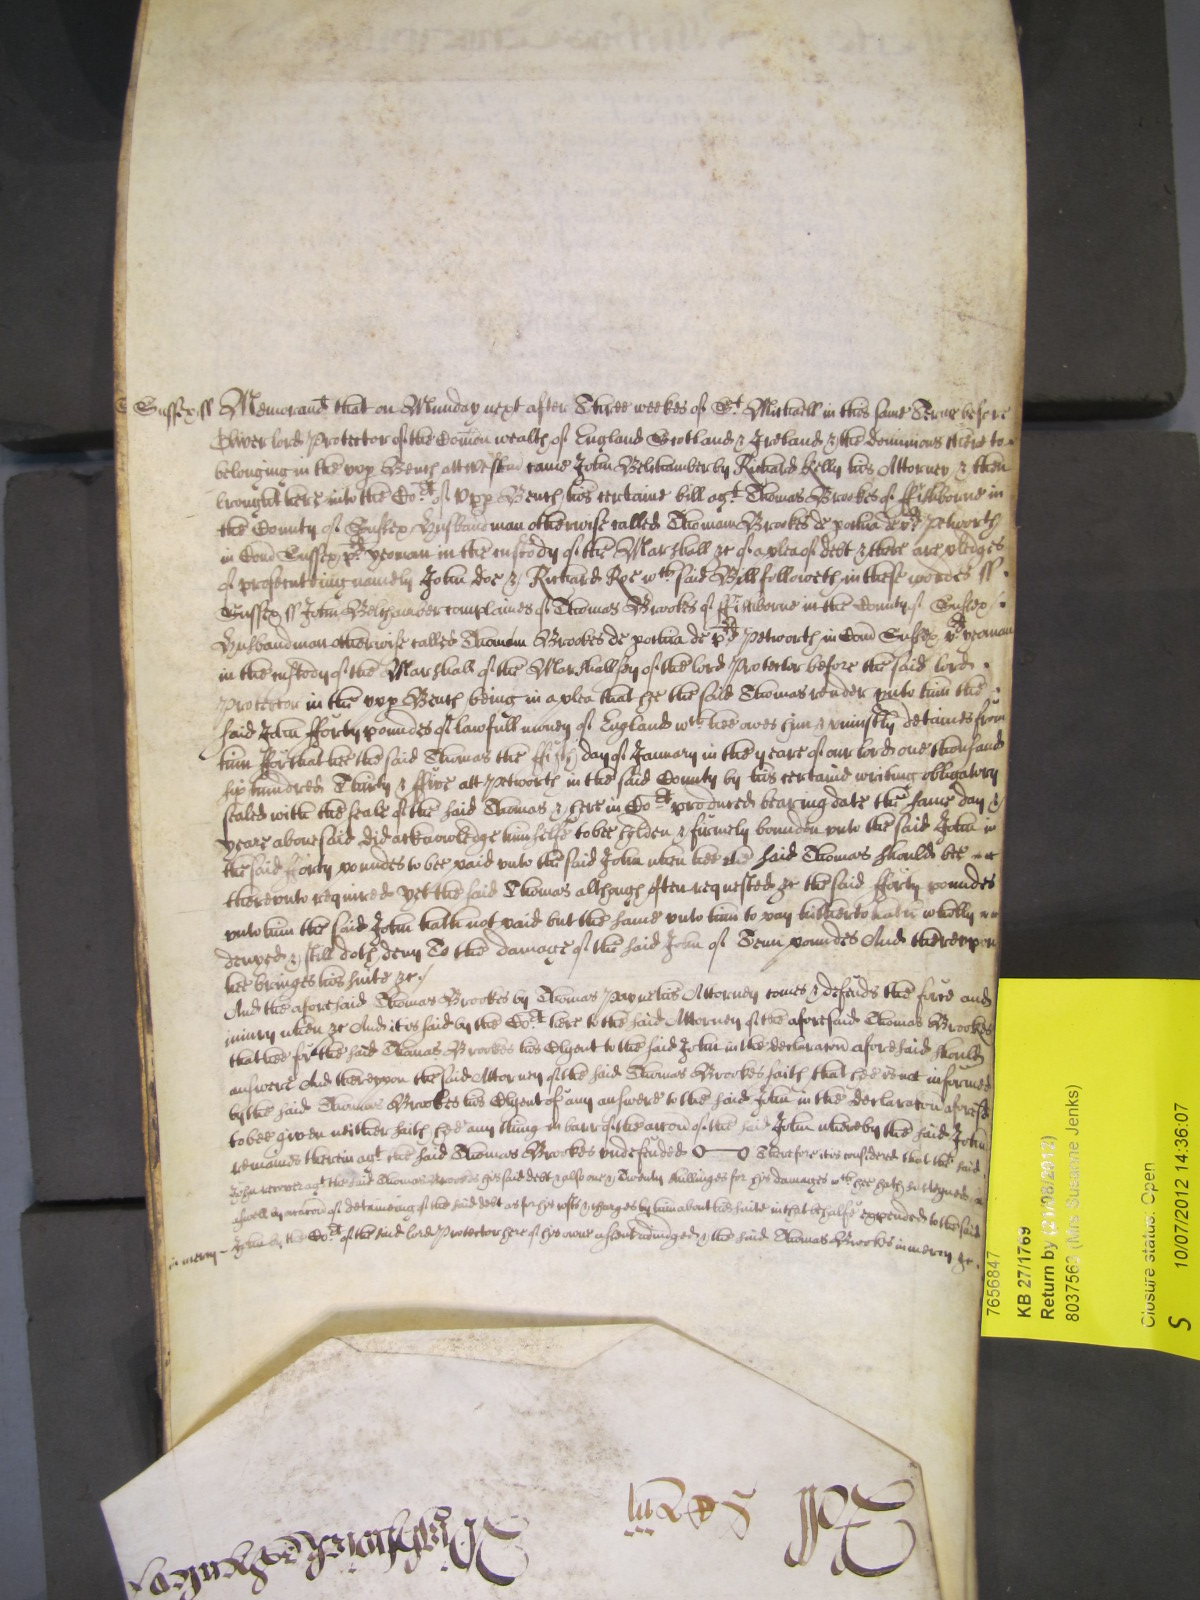 Sussex ss Memorand that on Munday next after Three weekes of St Michaell in this same Terme before
Oliver lord Protector of the Comon wealth of England Scotland & Ireland & the dominions there to
belonging in the upp Bench att Westm came John Belchamber by Richard Kelly his Attorney & then
brought here into the Cort of Upp Bench his certaine bill agt Thomas Brookes of ffishborne in
the County of Sussex Husbandman otherwise called Thomam Brookes de pochia de pd Petworth
in Com Sussex pd yeoman in the custody of the Marshall &c of a plea of debt & there are pledges
of prosecuting namely John Doe & Richard Roe wch said Bill followeth in these wordes ss
Sussex ss John Belchamber complaines of Thomas Brookes of ffishborne in the County of Sussex
Husbandman otherwise called Thomam Brookes de pochia de pd Petworth in Com Sussex pd yeoman
in the custody of the Marshall of the Marshallsey of the lord Protector before the said lord
Protector in the upp Bench being in a plea that he the said Thomas render unto him the
said John fforty poundes of lawfull money of England wch hee owes him & uniustly detaines from
him ffor that hee the said Thomas the day of January in the yeare of our lord one thousand
six hundred Thirty & ffive att Petworth in the said County by his certaine writing obligatory
sealed with the seale of the said Thomas & here in Cort produced bearing date the same day &
yeare abovesaid did acknowledge himselfe to bee holden & firmely bounden unto the said John in
the said fforty poundes to bee paid unto the said John when hee the said Thomas should bee
thereunto required Yet the said Thomas although often requested &c the said fforty poundes
unto him the said John hath not paid but the same unto him to pay hitherto hath wholly
denyed & still doth deny To the damage of the said John of Tenn poundes And thereupon
hee bringes his suite &c
And the aforesaid Thomas Brookes by Thomas his Attorney comes & defends the force and
iniury when &c And it is said by the Cort here to the said Attorney of the aforesaid Thomas Brookes
that hee for the said Thomas Brookes his Clyent to the said John in the declaracon aforesaid should
answere And thereupon the said Attorney of the said Thomas Brookes saith that hee is not informed
by the said Thomas Brookes his Clyent of any answere to the said John in the declaracon aforesd
to bee given neither saith hee any thing in barr of the accon of the said John whereby the said John
remaines therein agt the said Thomas Brookes undefended Therefore it is considered that the said
John recover agt the said Thomas Brookes his said debt & alsoe one & Twenty shillinges for his damages wch hee hath susteyned
aswell by occacon of detaineing of the said debt as for his costs & charges by him about his suite in that behalfe expended to the said
in mercy John by the Cort of the said lord Protector here of his owne assent adiudged & the said Thomas Brookes in mercy &c
7656847
KB 27/1769
Return by (21/08/2012)
8037563 (Mrs Susanne Jenks)
Closure status: Open
S 10/07/2012 14:36:07